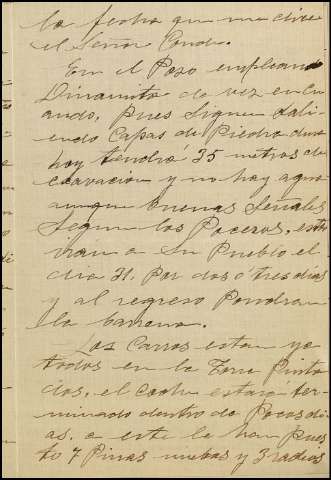 la fecha que me dice
el Señor Conde.
En el Pozo empleando
Dinamita de vez en cu
ando, pues siguen sali
endo Capas de Piedra dura
hoy tendrá 35 metros de
cavacion y no hay agua
aunque buenas señales
segun los Poceros, estos
van a su Pueblo el
dia 31. Por dos ó tres dias
y al regreso Pondran
la barrena.
Los Carros estan ya
todos en la Torre Pinta
dos, el coche estará ter-
minado dentro de Pocos di
as. a este le han pues
to 7 Pinas nuebas y 3 radios